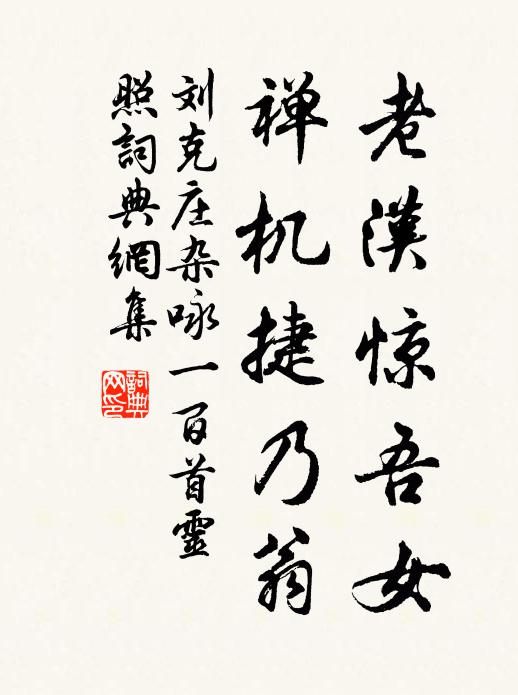 老漢惊吾女
禅机捷乃翁
刘克庄杂咏一百首靈
照詞典網集
詞典
网印